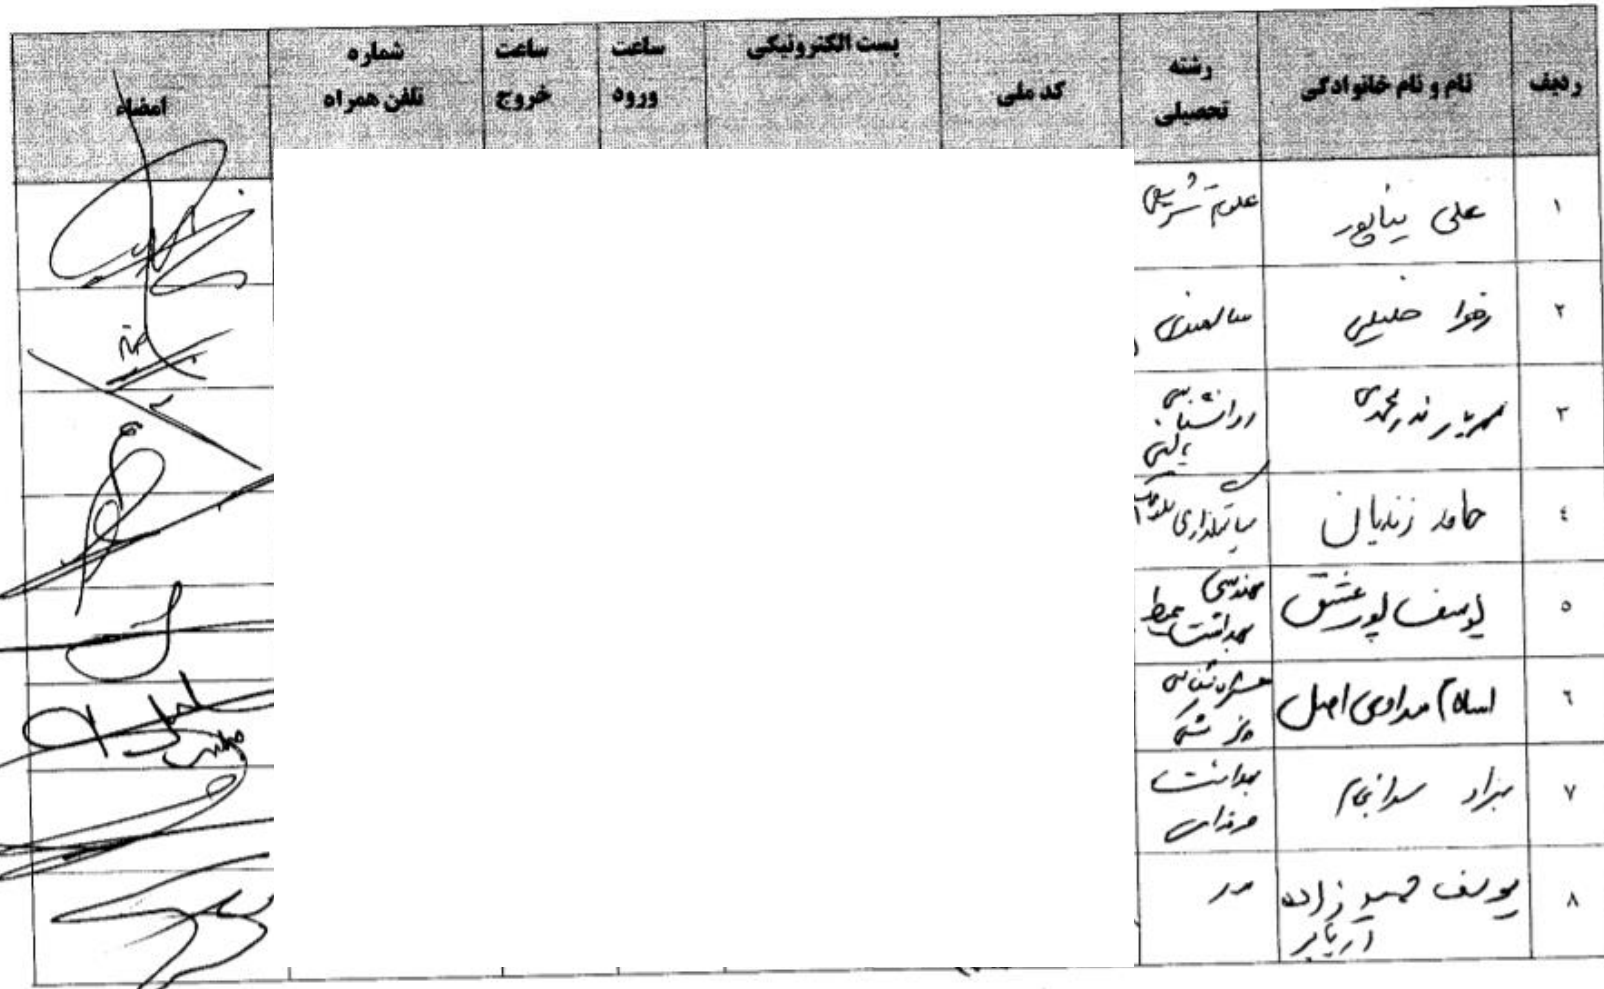 ردیف نام و نام خانوادگی رشته تحصیلی کد ملی پست الکترونیکی ساعت ورود ساعت خروج شماره تلفن همراه امضاء
۱ علی پناپور علوم تشریحی
۲ زهرا خلیلی سالمندی
۳ محمدی روانشناسی بالینی
۴ حامد زندیان سیاستگذاری سلامت
۵ یوسف پور عشق مهندسی بهداشت محیط
۶ اسلام مرادی اصل حشره شناسی پزشکی
۷ بهزاد سرانجام بهداشت حرفه‌ای
۸ یوسف حمید زاده